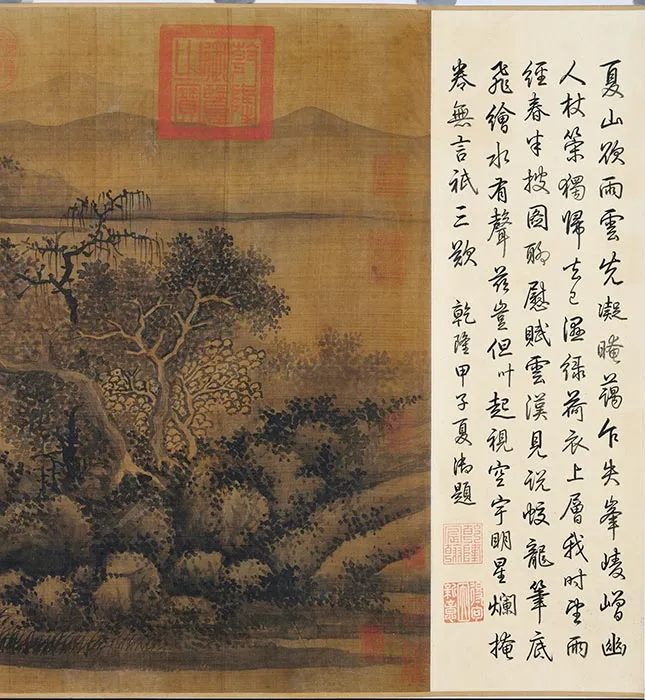 夏山欲雨雲先凝晻藹乍失峯崚嶒幽
人杖策獨歸去已濕綠荷衣上層我時望雨
經春半披圖聊慰賦雲漢見說蛟龍筆底
飛繪水有聲茲豈但叶起視空宇明星爛掩
卷無言祇三歎 乾隆甲子夏御題
乾隆宸翰
乾隆御覽之寶